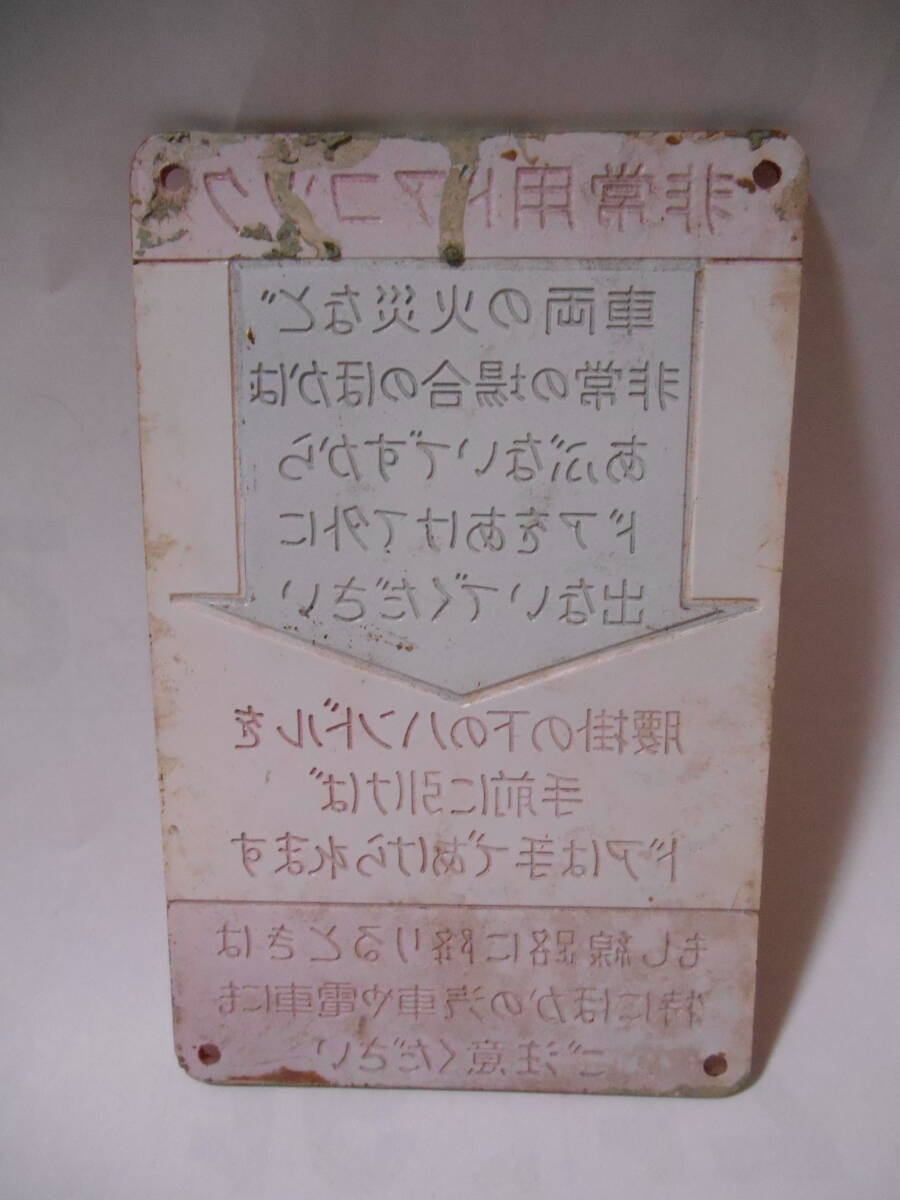 非常用ドアコック
車両の火災など
非常の場合のほかは
あぶないですから
ドアをあけて外に
出ないでください
腰掛の下のハンドルを
手前に引けば
ドアは手であけられます
もし線路に降りるときは
特にほかの汽車や電車にも
ご注意ください